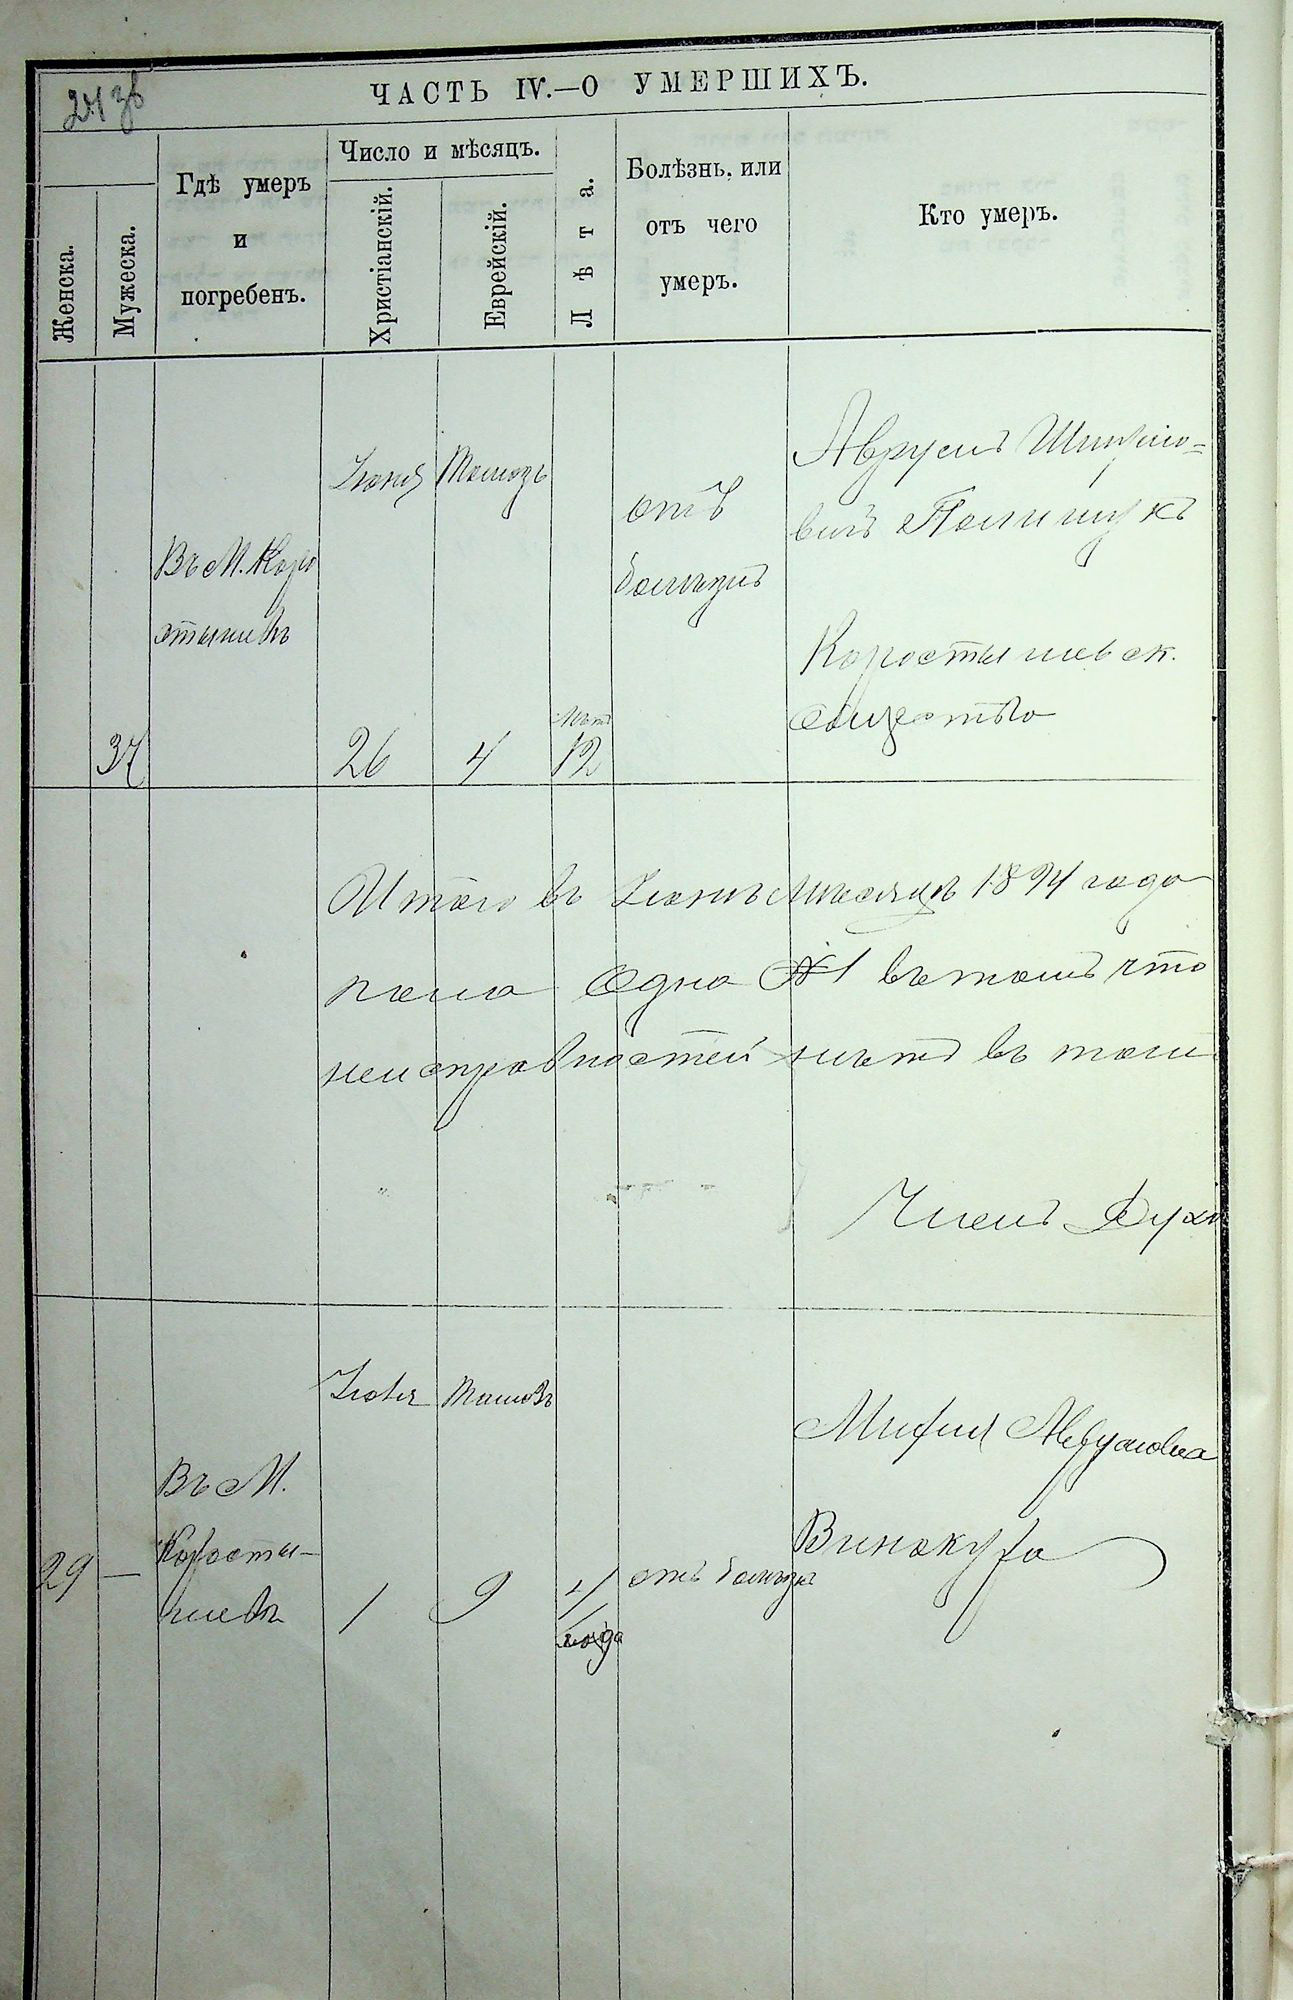 ЧАСТЬ IV.—О УМЕРШИХЪ.
Женска.
Мужеска.
Гдѣ умеръ
и
погребенъ.
Число и мѣсяцъ.
Христіанскій.
Еврейскій.
Лѣта.
Болѣзнь, или
отъ чего
умеръ.
Кто умеръ.
37
Въ М. Коро
стышевѣ
Іюня
26
Тамозъ
4
лѣтъ
12
отъ
болѣзни
Аврумъ
вичъ Полищукъ
Коростышевск.
общества
Итого въ Іюнѣ мѣсяцѣ 1894 года
Одна №1 въ томъ что
неисправностей нѣтъ въ томъ
Членъ Духо
29 —
Въ М.
Коросты-
шевѣ
Іюля
1
Тамозъ
9
4
года
отъ болѣзн
Аврумовна
Винокура